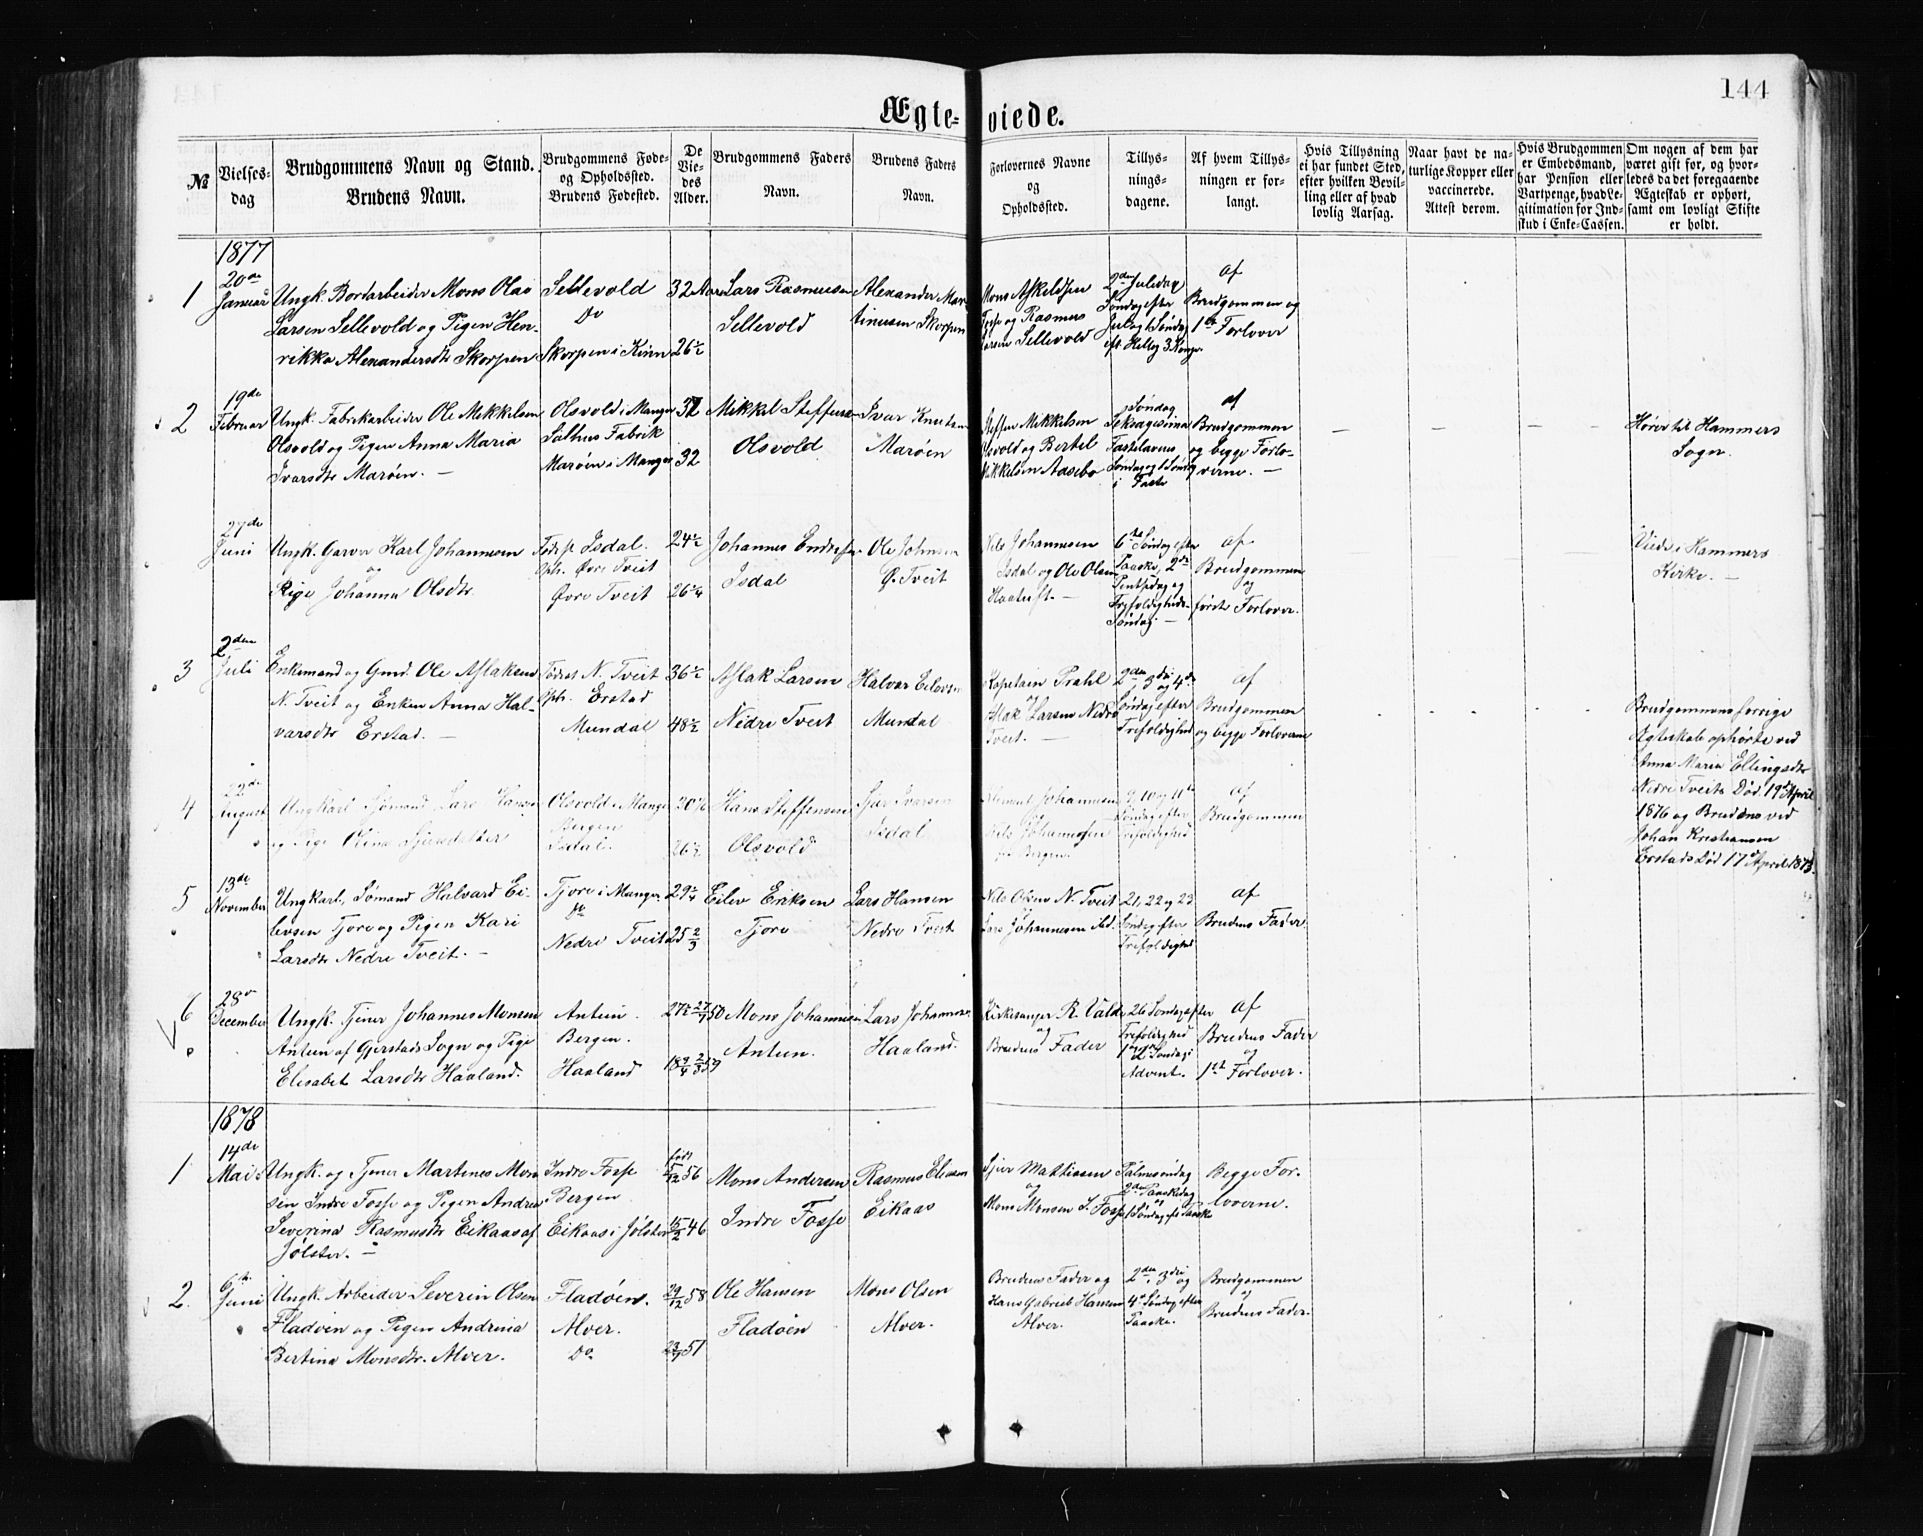 144
Ægte-viede.
№
Vielses-
dag
Brudgommens Navn og Stand.
Brudens Navn.
Brudgommens Føde-
og Opholdssted.
Brudens Fødested.
De
Vie-
des
Alder.
Brudgommens Faders
Navn.
Brudens Faders
Navn.
Forlovernes Navne
og
Opholdssted.
Tillys-
nings-
dagene.
Af hvem Tillys-
ningen er for-
langt.
Hvis Tillysning
ei har fundet Sted,
efter hvilken Bevil-
ling eller af hvad
lovlig Aarsag.
Naar havt de na-
turlige Kopper eller
vaccinerede.
Attest derom.
Hvis Brudgommen
er Embedsmand,
har Pension eller
Vartpenge, hvad Le-
gitimation for Ind-
skud i Enke-Cassen.
Om nogen af dem har
været gift før, og hvor-
ledes da det foregaaende
Ægteskab er ophørt,
samt om lovligt Skifte
er holdt.
1877
1
20de
Januar
Ungk. Bordarbeider Mons Olai
Larsen Sellevold og Pigen Hen-
rikka Alexandersdtr Skorpen
Sellevold
Do
Skorpen i Kinn
32 Aar
26½
Lars Rasmussen
Sellevold
Alexander Mar-
tinusen Skorpen
Mons Askeldsen
Fosse og Rasmus
Larsen Sellevold
2den Juledag
Søndag efter
Jul og 1 Søndag
eft. Hellig 3 Konger
af
Brudgommen og
1ste Forlover
2
19de
Februar
Ungk. Fabrikarbeider Ole Mikkelsen
Olsvold og Pigen Anna Maria
Ivarsdtr Marøen. —
Olsvold i Manger
Salhus Fabrik
Marøen i Manger
32
32
Mikkel Steffensen
Olsvold
Ivar Knutsen
Marøen
Steffen Mikkelsen
Olsvold og Bertel
Mikkelsen Aasebø
Søndag
Seksagesima
Fastelavens
Søndag og 1 Søndag
i Faste
af
Brudgommen
og begge Forlo-
verne. —
— — — —
Hører til Hammers
Sogn.
27de
Juni
Ungk. Garver Karl Johannesen
og
Pige Johanna Olsdtr.
Fødest. Isdal.
Oph. Øvre Tveit
Øvre Tveit
24½
26¼
Johannes Endresen
Isdal
Ole Johnsen
Ø. Tveit
Nils Johannesen
Isdal og Ole Olsen
6te Søndag efter
Paaske, 2den
Pintsedag og
Trefoldigheds-
Søndag. —
af
Brudgommen
og
første Forlover.
Viede i Hammers
Kirke. —
3
2den
Juli
Enkemand og Gmd. Ole Aslaksen
N. Tveit og Enken Anna Hal-
varsdtr Erstad. —
Fødest N. Tveit
Oph. Erstad
Mundal
36½
48½
Aslak Larsen
Nedre Tveit
Halvor Eilevsen
Mundal
Kapitain Prahl
og
Aslak Larsen Nedre
Tveit. —
2den 3die
og 4de
Søndag efter
Trefoldighed
af
Brudgommen
og begge Forloverne
Brudgommens forrige
Ægteskab ophørte ved
Anna Maria Ellingsdtr
Nedre Tveits Død 19de April
1876 og Brudens ved
Johan Kristiansen
Erstads Død 17de April 1873.
4
22de
August
Ungkarl Sømand Lars Hansen
og Pige Olina Sjursdatter
Olsvold i Manger
Bergen
Isdal.
20½
26½
Hans Steffensen
Olsvold
Sjur Ivarsen
Isdal
Johannesen
og
Nils Johannesen
Bergen.
9, 10 og 11te
Søndag efter
Trefoldighed
af
Brudgommen
5
13de
November
Ungkarl, Sømand Halvard Ei-
levsen Tjore og Pigen Kari
Larsdtr Nedre Tveit. —
Tjore i Manger
Do
Nedre Tveit
29¼
25⅔
Eilev Eriksen
Tjore
Lars Hansen
Nedre Tveit
Nils Olsen N. Tveit
Lars Johannesen ibd.
21, 22 og 23
Søndag efter
Trefoldighed
af
Brudens Fader
6
28de
December
Ungk. Tjener Johannes Monsen
Antun af Gjerstads Sogn og Pige
Elisabet Larsdtr Haaland.
Antun.
Bergen.
Haaland
27½ 27/7 50
18¾ 2/3 59
Mons Johannesen
Antun.
Lars Johannes.
Haaland.
Kirkesanger R. Valde
og
Brudens Fader
26 Søndag efter
Trefoldighed
1 og 2 Søndag i
Advent.
af
Brudens Fader
og
1ste Forlover.
1878
1
14de
Mai
Ungk. og Tjener Martines Mon-
sen Indre Fosse og Pigen Andrea
Severina Rasmusdtr Eikaas af
Jølster. —
Indre Fosse
Bergen
Eikaas i Jølster
født
5/12 56
15/2 46
Mons Andersen
Indre Fosse
Rasmus Eliasen
Eikaas
Sjur Mathiasen
og
Mons Monsen I. Fosse
Palmesøndag
2den Paaskedag
og
1 Søndag eft Paaske
Begge For-
loverne.
2.
6te
Juni
Ungk. Arbeider Severin Olsen
Fladøen og Pigen Andrina
Bertina Monsdtr. Alver.
Fladøen.
Alver.
Do
29/12 58
23/7 51
Ole Hansen
Fladøen
Mons Olsen
Alver.
Brudens Fader og
Hans Gabriel Hansen
Alver.
2den, 3die og
4de Søndag efter
Paaske.
Brudgommen
og
Brudens Fader.